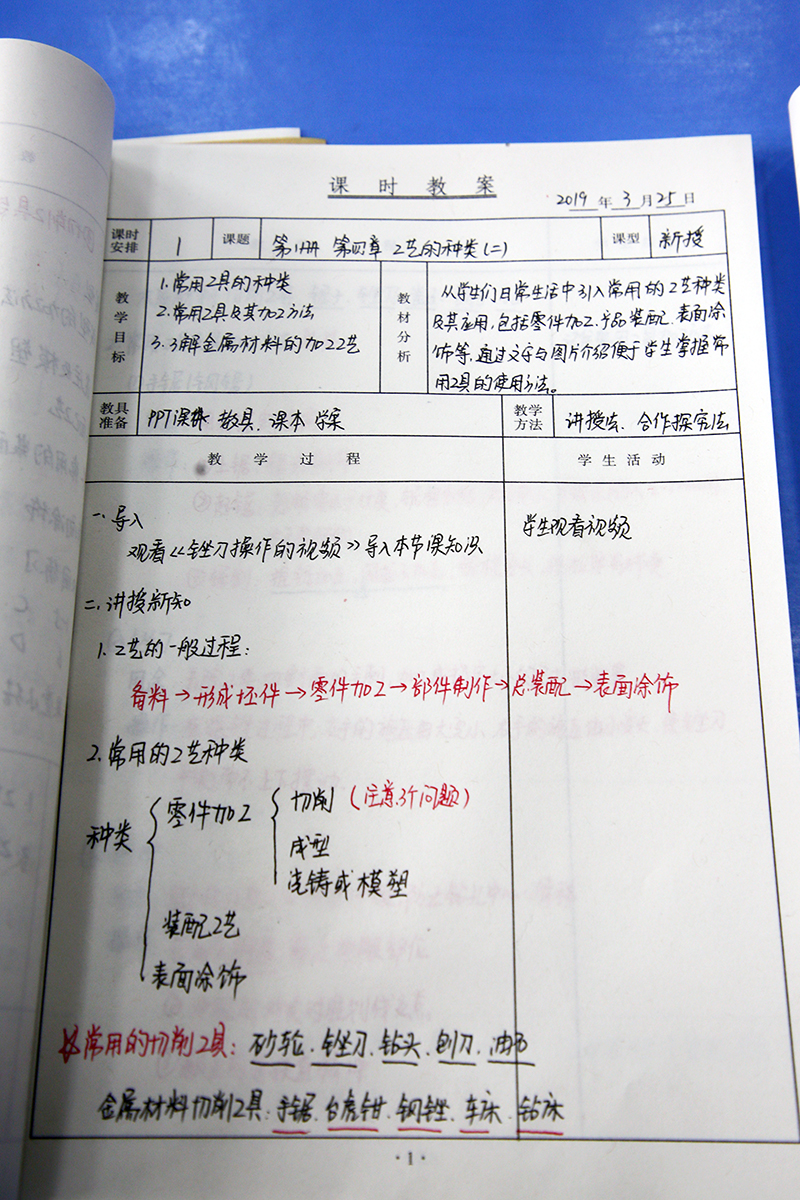 课 时 教 案
2019 年 3 月 25 日
课时安排 1 课题 第1册 第四章 工艺的种类(二) 课型 新授
教学目标
1.常用工具的种类
2.常用工具及其加工方法
3.了解金属材料的加工工艺
教材分析
从学生们日常生活中引入常用的工艺种类
及其应用,包括零件加工、产品装配、表面涂
饰等,通过文字与图片介绍便于学生掌握常
用工具的使用方法。
教具准备 PPT课件 教具、课本 学案 教学方法 讲授法、合作探究法
教 学 过 程 学 生 活 动
一.导入 学生观看视频
观看《锉刀操作的视频》导入本节课知识
二.讲授新知
1.工艺的一般过程:
备料→形成坯件→零件加工→部件制作→总装配→表面涂饰
2.常用的工艺种类
种类
零件加工
切削(注意3个问题)
成型
浇铸或模塑
装配工艺
表面涂饰
常用的切削工具:砂轮、锉刀、钻头、刨刀、油石
金属材料切削工具:手锯、台虎钳、钢锉、车床、钻床
·1·